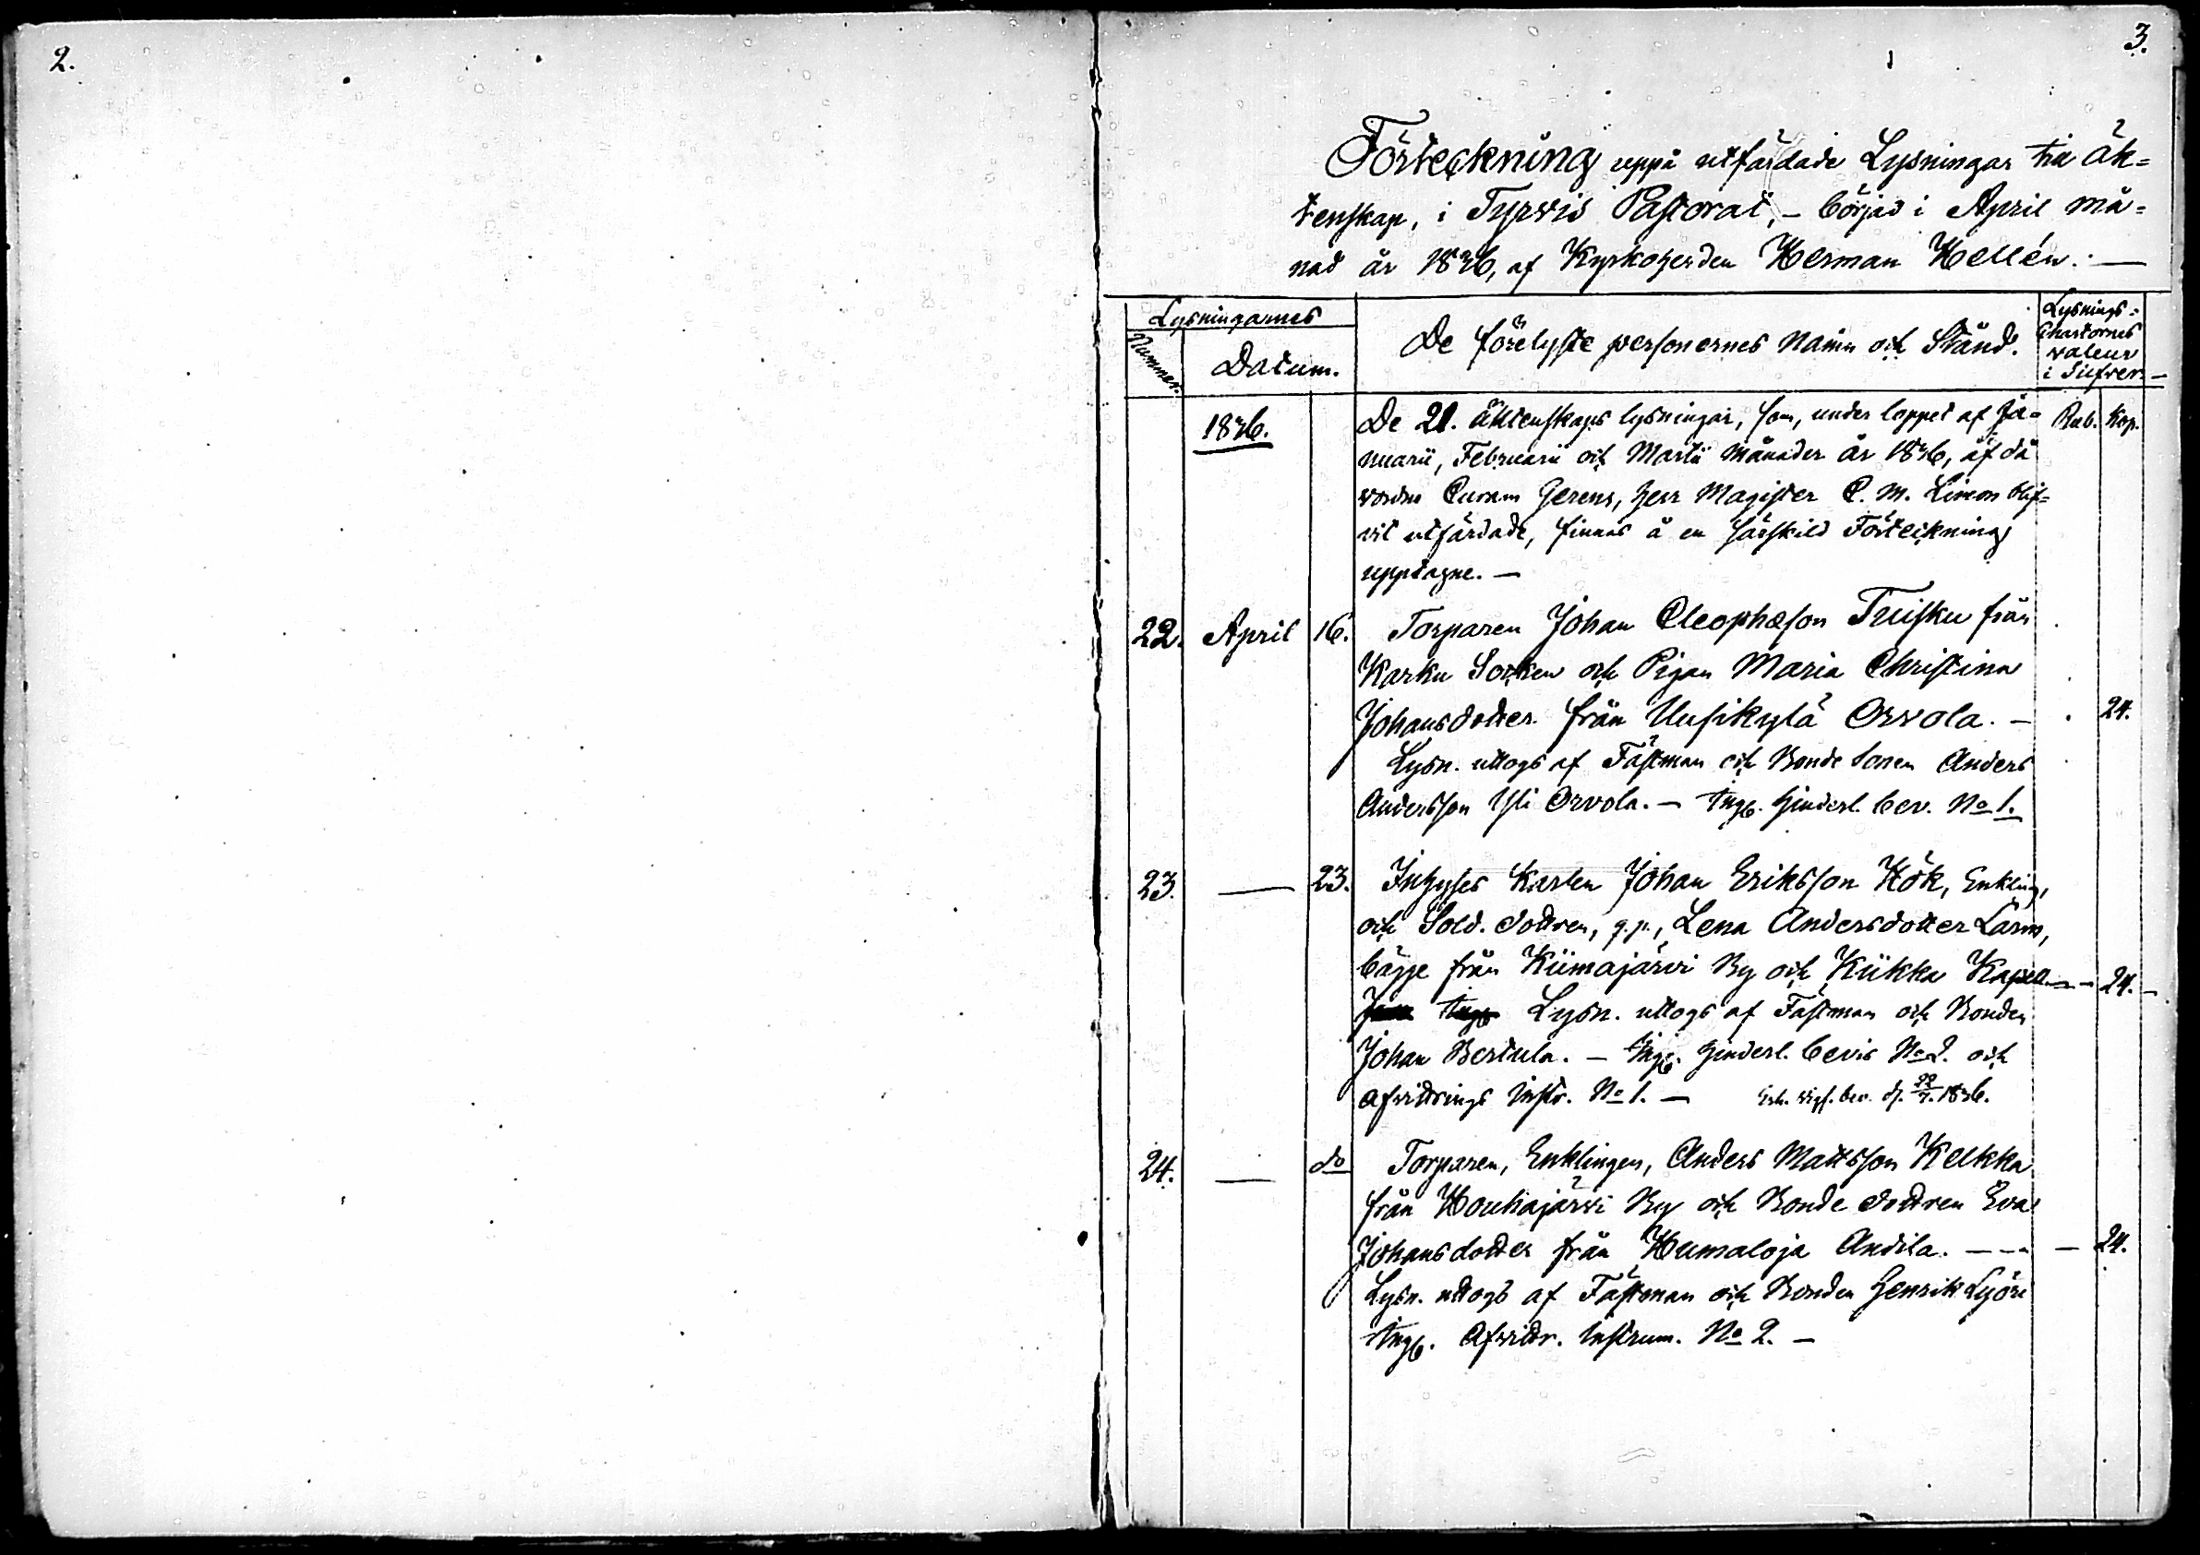 2.
3.
Förteckning uppå utfärdade Lysningar till äk=
tenskap, i Tyrvis Pastorat, – börjad i April må=
nad år 1846, af Kyrkoherden Herman Hellén. —
Lysningarnes
Nummer.
Datum.
De förelyste personernes Namn och Stånd.
Lysnings=
Chartornes
valeur
i Silfver. –
1846.
De 21. äktenskaps lysningar, som, under loppet af Ja=
nuarii, Februarii och Martii Månader år 1846, af då
varande Curam Gerens, Herr Magister C. M. Limon blif=
vit utfärdade, finnas å en särskild Förteckning
upptagne. —
Rub. Kop.
22. April 16. Torparen Johan Cleophæson Tuisku från
Karku Socken och Pigan Maria Christina
Johansdotter från Uusikylä Orvola. – 24.
Lysn. uttogs af Fästman och Bonde Sonen Anders
Andersson Yli Orvola. – Ingb. Hinderl. bev. No 1.
23. — 23. Inhyses Karlen Johan Eriksson Hök, Enkling,
och Sold. dottren, q.p., Lena Andersdotter Larm,
bägge från Kiimajärvi By och Kiikka Kapell. — 24. –
Lysn. uttogs af Fästman och Bonden
Johan Bertula. – Ingb. Hinderl. bevis No 2. och
Afvittrings Instr. No 1. — 1846.
24. — do Torparen, Enklingen, Anders Mattsson Kelkka
från Houhajärvi By och Bonde dottren Eva
Johansdotter från Humaloja Andila. – – – 24.
Lysn. uttogs af Fästman och Bonden Henrik Lyöri
Ingb. Afvittr. Instrum. No 2. –